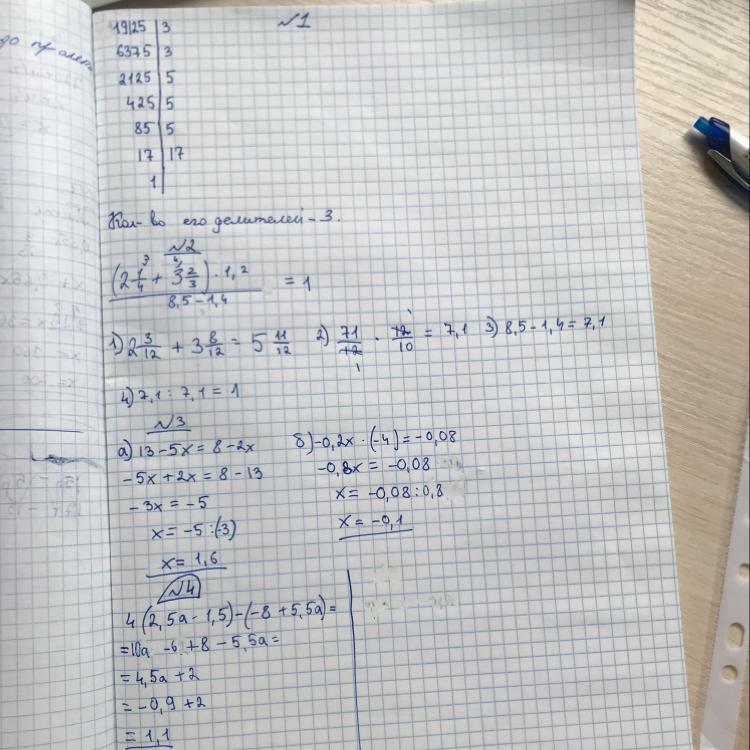 до
№1
19125 | 3
6375 | 3
2125 | 5
425 | 5
85 | 5
17 | 17
1 |
Кол-во его делителей - 3.
№2
(2 1/4 + 3 2/3) · 1,2 / 8,5 - 1,4 = 1
1) 2 3/12 + 3 8/12 = 5 11/12 2) 71/12 · 12/10 = 7,1 3) 8,5 - 1,4 = 7,1
4) 7,1 : 7,1 = 1
№3
а) 13 - 5x = 8 - 2x
-5x + 2x = 8 - 13
-3x = -5
x = -5 : (3)
x = 1,6
б) -0,2x · (-4) = -0,08
-0,8x = -0,08
x = -0,08 : 0,8
x = -0,1
№4
4 (2,5a - 1,5) - (-8 + 5,5a) =
= 10a - 6 + 8 - 5,5a =
= 4,5a + 2
= -0,9 + 2
= 1,1